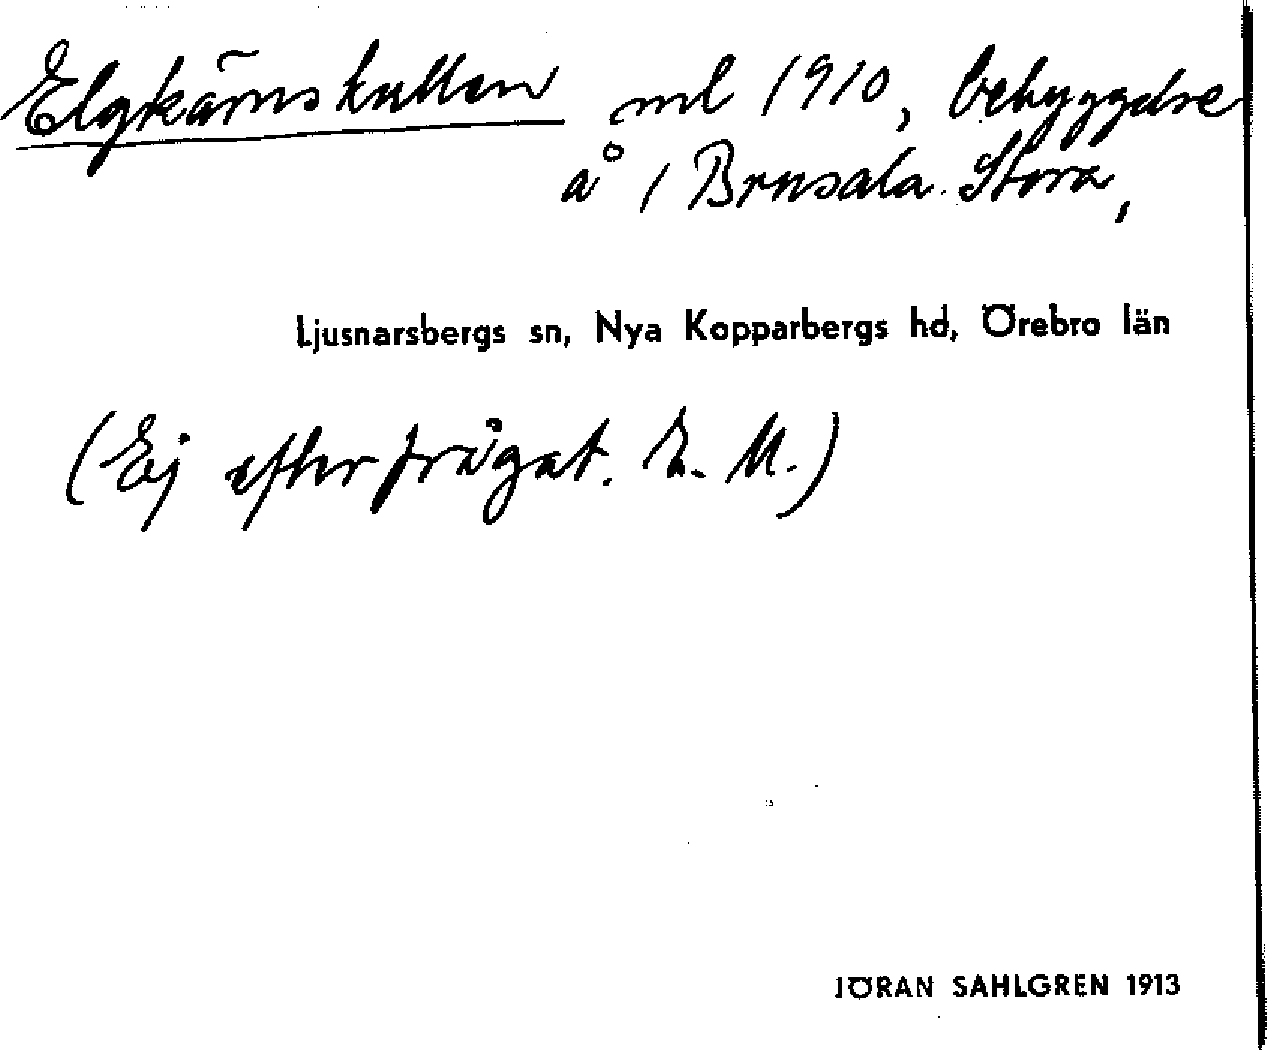 Elgkärnskullen ml 1910, bebyggelse
å 1 Brusala Stora,
Ljusnarsbergs sn, Nya Kopparbergs hd, Örebro län
(Ej efterfrågat. E. M.)
JÖRAN SAHLGREN 1913